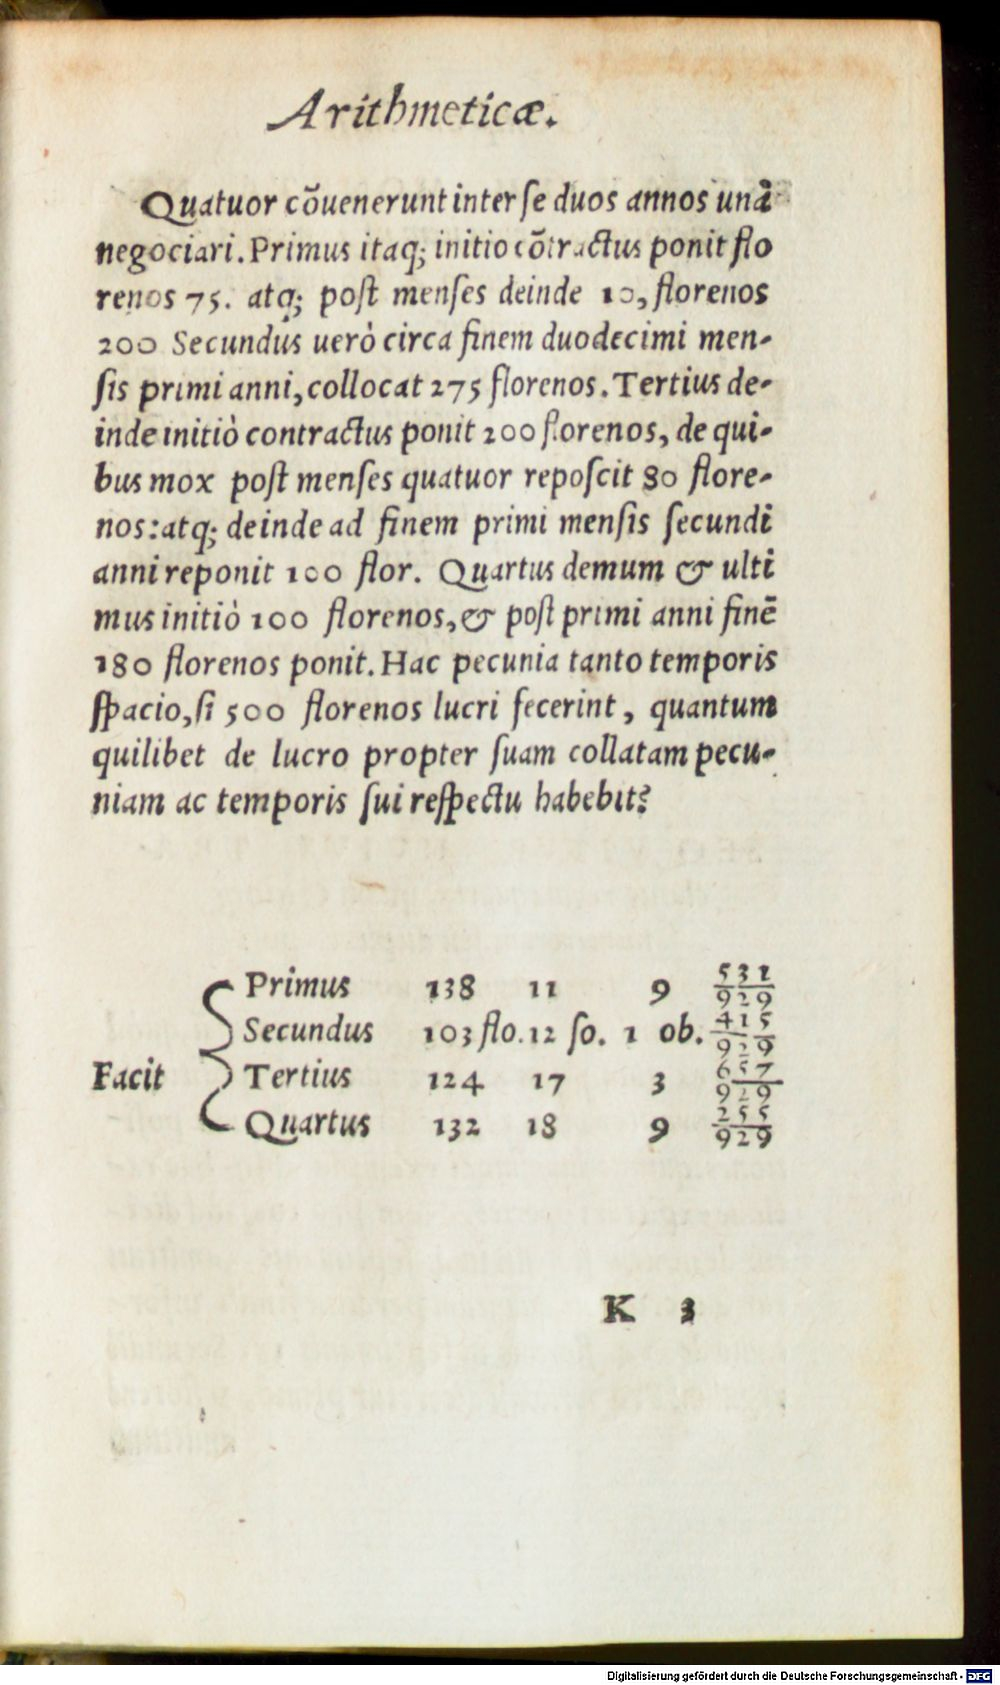 Arithmeticæ.
Quatuor cõuenerunt inter ſe duos annos unà
negociari. Primus itaq; initio cõtractus ponit flo
renos 75. atq; poſt menſes deinde 10, florenos
200 Secundus uerò circa finem duodecimi men-
ſis primi anni, collocat 275 florenos. Tertius de-
inde initiò contractus ponit 200 florenos, de qui-
bus mox poſt menſes quatuor repoſcit 80 flore-
nos: atq; deinde ad finem primi menſis ſecundi
anni reponit 100 flor. Quartus demum & ulti
mus initiò 100 florenos, & poſt primi anni finẽ
180 florenos ponit. Hac pecunia tanto temporis
ſpacio, ſi 500 florenos lucri fecerint, quantum
quilibet de lucro propter ſuam collatam pecu-
niam ac temporis ſui reſpectu habebit?
Primus 138 11 9 531/929
Secundus 103 flo. 12 ſo. 1 ob. 415/929
Facit Tertius 124 17 3 657/929
Quartus 132 18 9 255/929
K 3
Digitalisierung gefördert durch die Deutsche Forschungsgemeinschaft - DFG